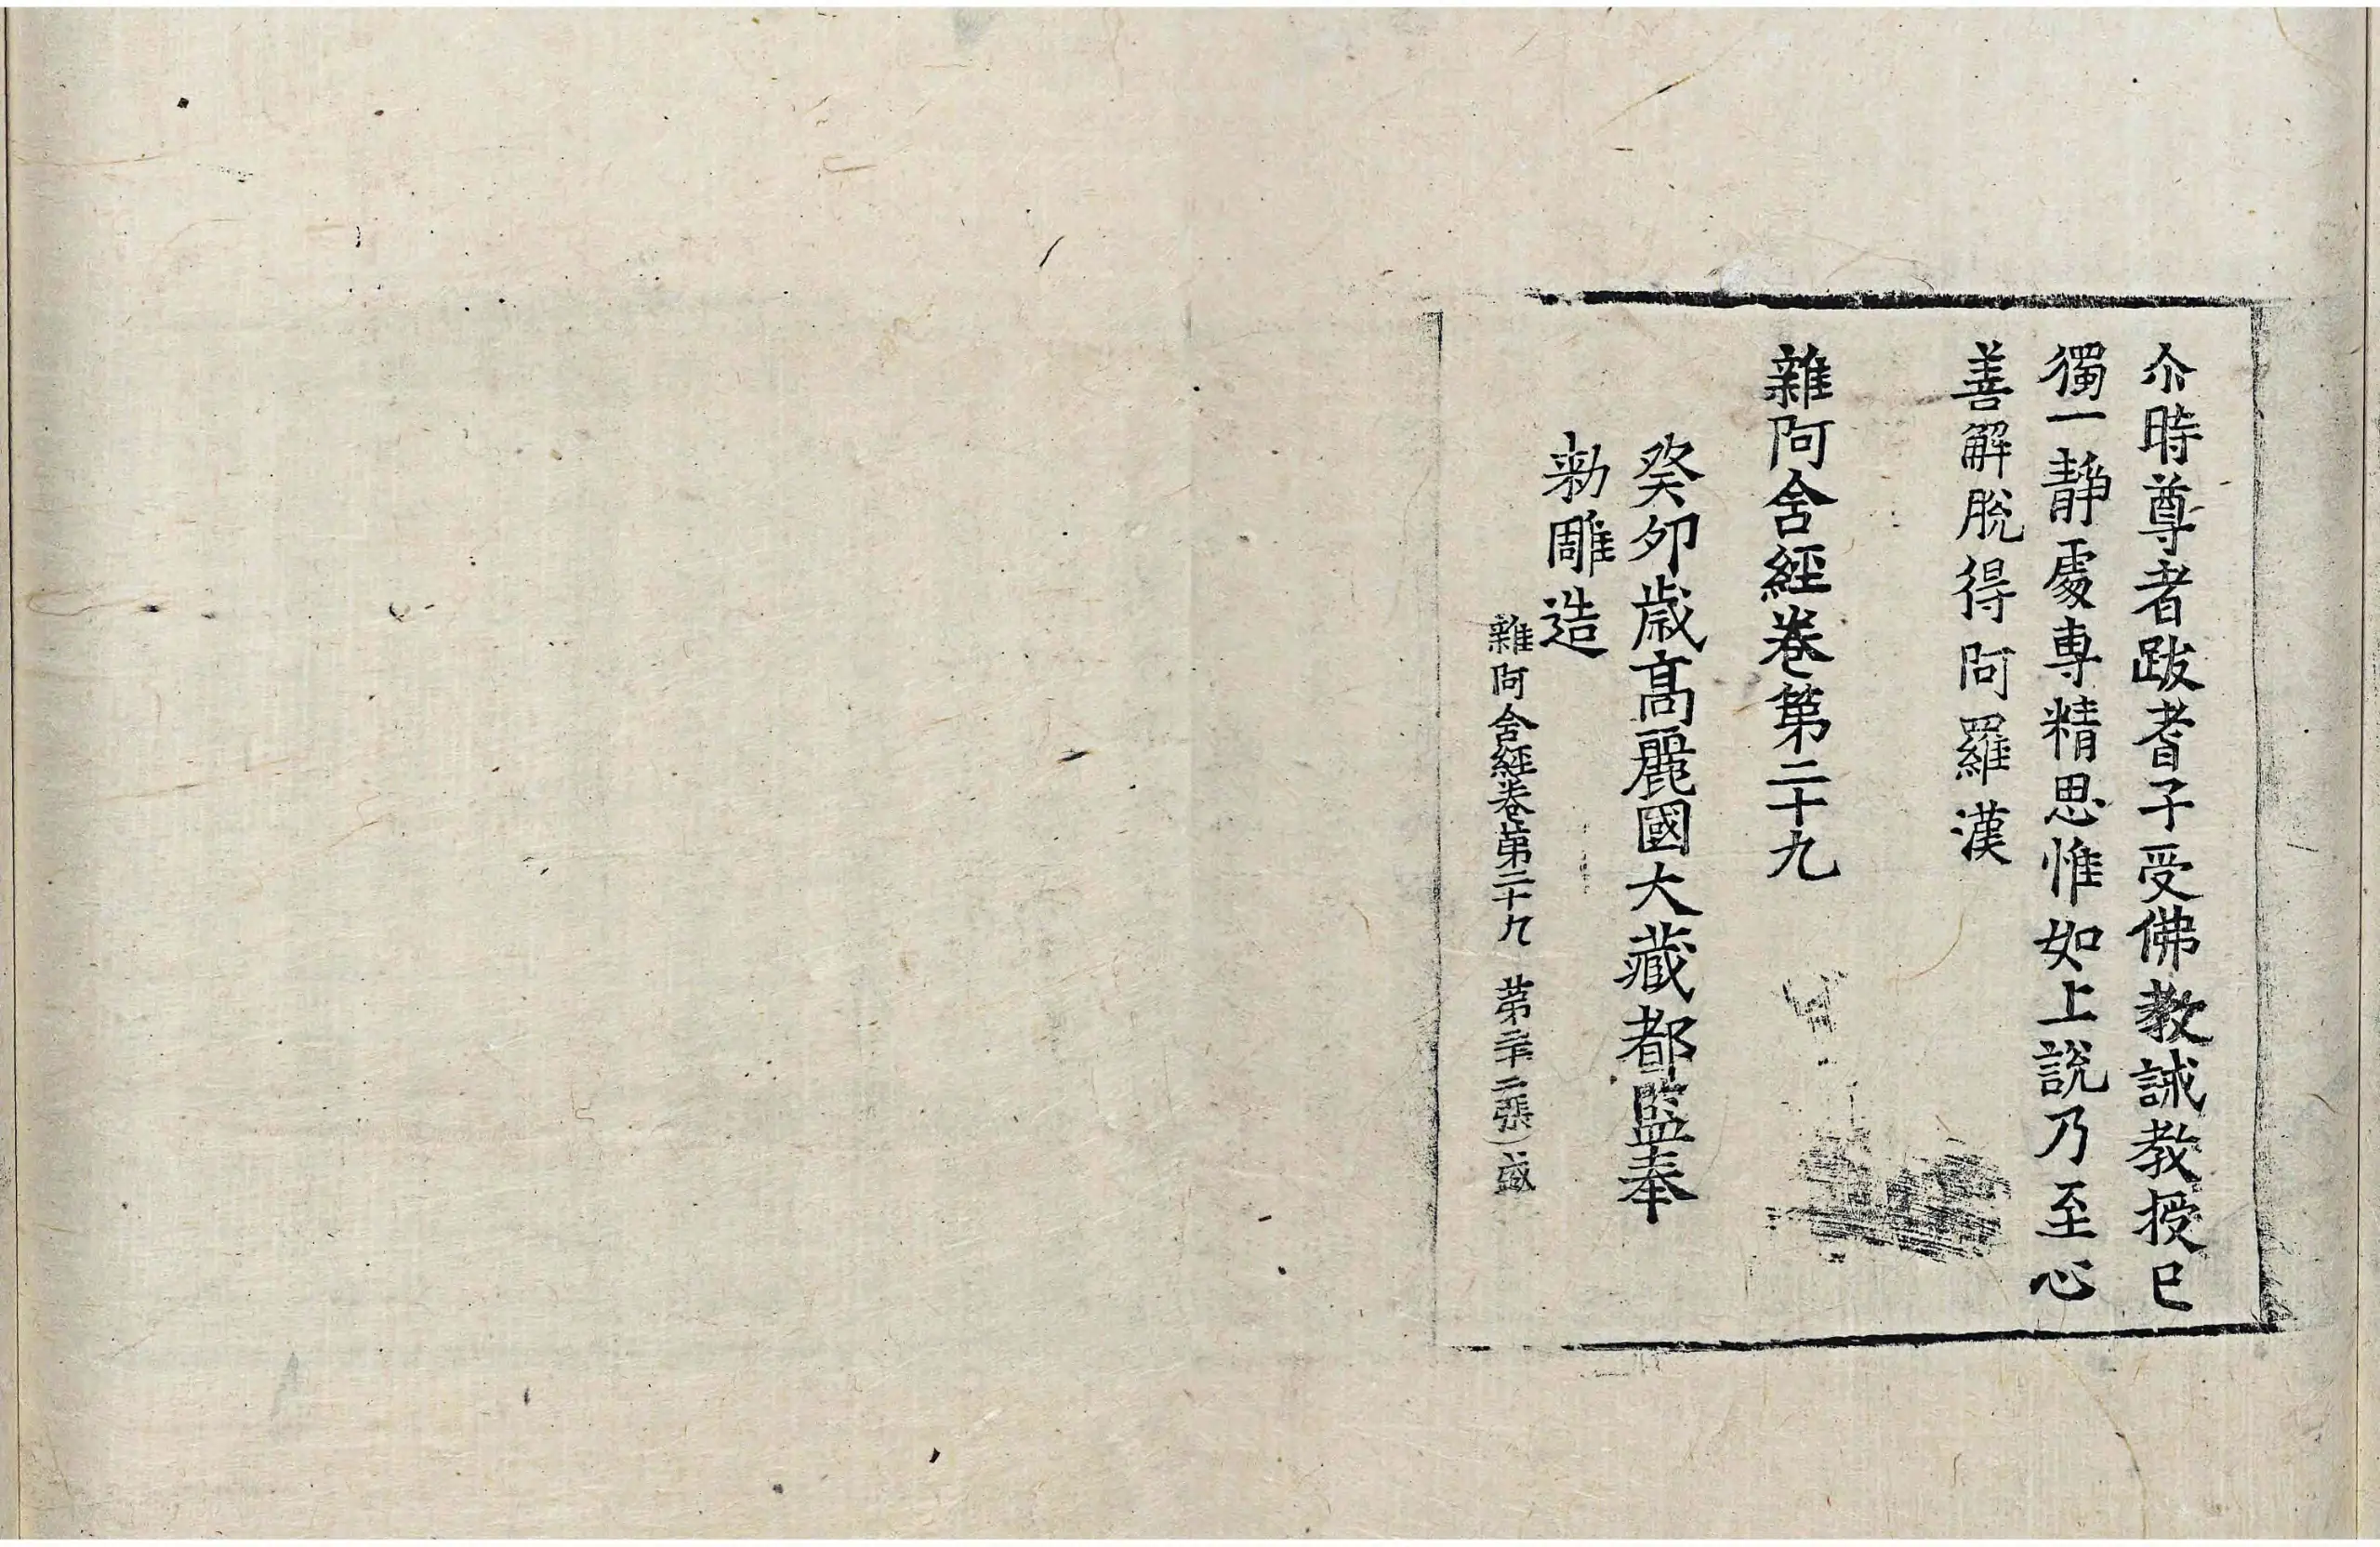 尒時尊者跋耆子受佛教誡教授已
獨一靜處專精思惟如上說乃至心
善解脫得阿羅漢
雜阿含經卷第二十九
癸卯歲高麗國大藏都監奉
勅雕造
雜阿含經卷第二十九 第二十二張 盛